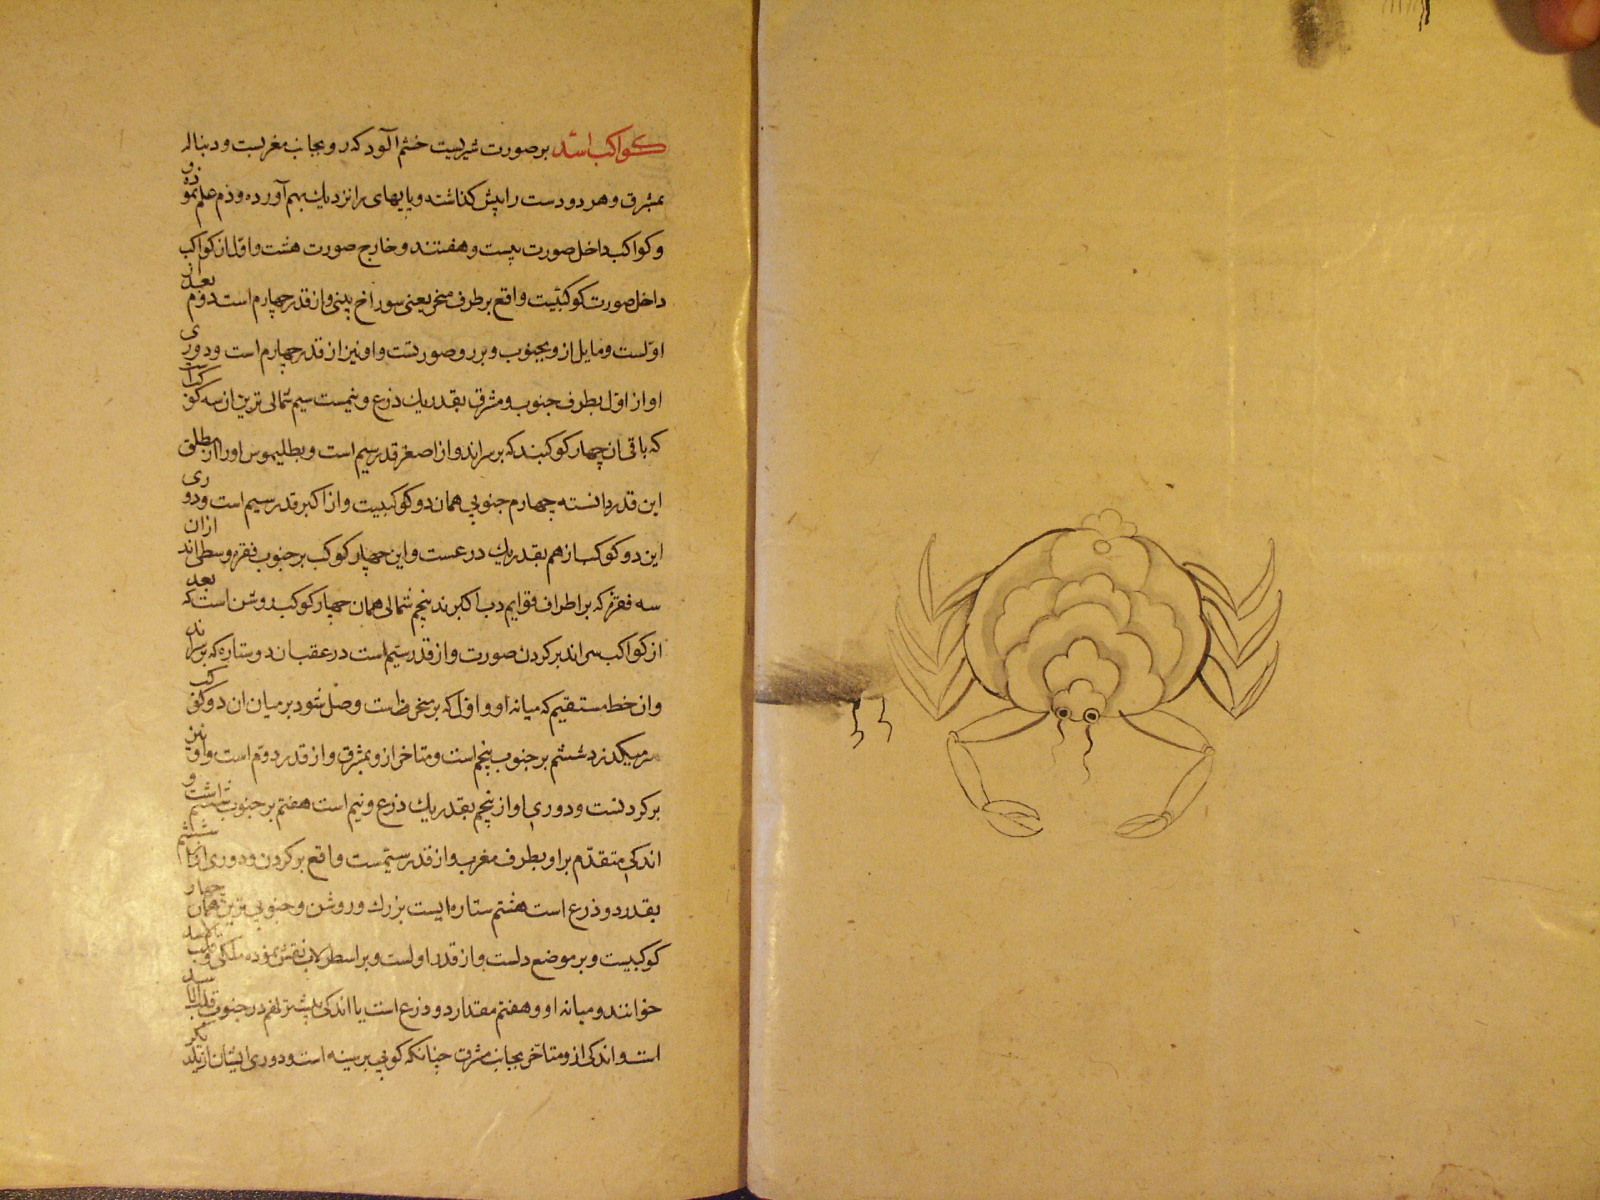 كواكب اسد بر صورت شيريست خشم آلود كه رو بجانب مغربست و دنباله
بمشرق و هر دو دست را پيش گذاشته و پايهاى را نزديك بهم آورده و دم علم نموده
و كواكب داخل صورت بيست و هفتند و خارج صورت هشت و اول از كواكب
داخل صورت كوكبيست واقع بر طرف منخر يعنى سوراخ بينى و از قدر چهارم است دوم بعد از
اولست و مايل ازو بجنوب و بر رو صورتست و او نيز از قدر چهارم است و دورى
او از اول بطرف جنوب و مشرق بقدر يك ذرع و نيمست سيم شمالى ترين ان سه كوكبست
كه باقى ان چهار كوكبند كه بر سراند و از اصغر قدر سيم است و بطليموس او را از مطلق
اين قدر دانسته چهارم جنوبى همان دو كوكبيست و از اكبر قدر سيم است و دورى
اين دو كوكب از هم بقدر يك ذرعست و اين چهار كوكب بر جنوب فقره وسطى اند از ان
سه فقره كه بر اطراف قوايم دب اكبرند پنجم شمالى همان چهار كوكب روشن است كه بعد
از كواكب سراند بر كردن صورت و از قدر سيم است در عقب ان دو ستاره كه بر سرند
و ان خط مستقيم كه ميانه او و اول كه بر منخر است وصل شود بر ميان ان دو كوكب
ميكذرد ششم بر جنوب پنجم است و متاخر ازو بمشرق و از قدر دوم است و او نيز
بر كردنست و دورى او از پنجم بقدر يك ذرع و نيم است هفتم بر جنوب ششم است و
اندكى متقدم بر او بطرف مغرب و از قدر سيمست واقع بر كردن و دورى او از ششم
بقدر دو ذرع است هشتم ستاره ايست بزرك و روشن و جنوبى ترين همان چهار
كوكبيست و بر موضع دلست و از قدر اولست و بر اسطرلاب نقش نموده ملكى و قلب الاسد
خوانند و ميانه او و هفتم مقدار دو ذرع است يا اندكى بيشتر نهم در جنوب قلب الاسد
است و اندكى ازو متاخر بجانب مشرق چنانكه كويى بر سينه است و دورى ايشان از يكديگر